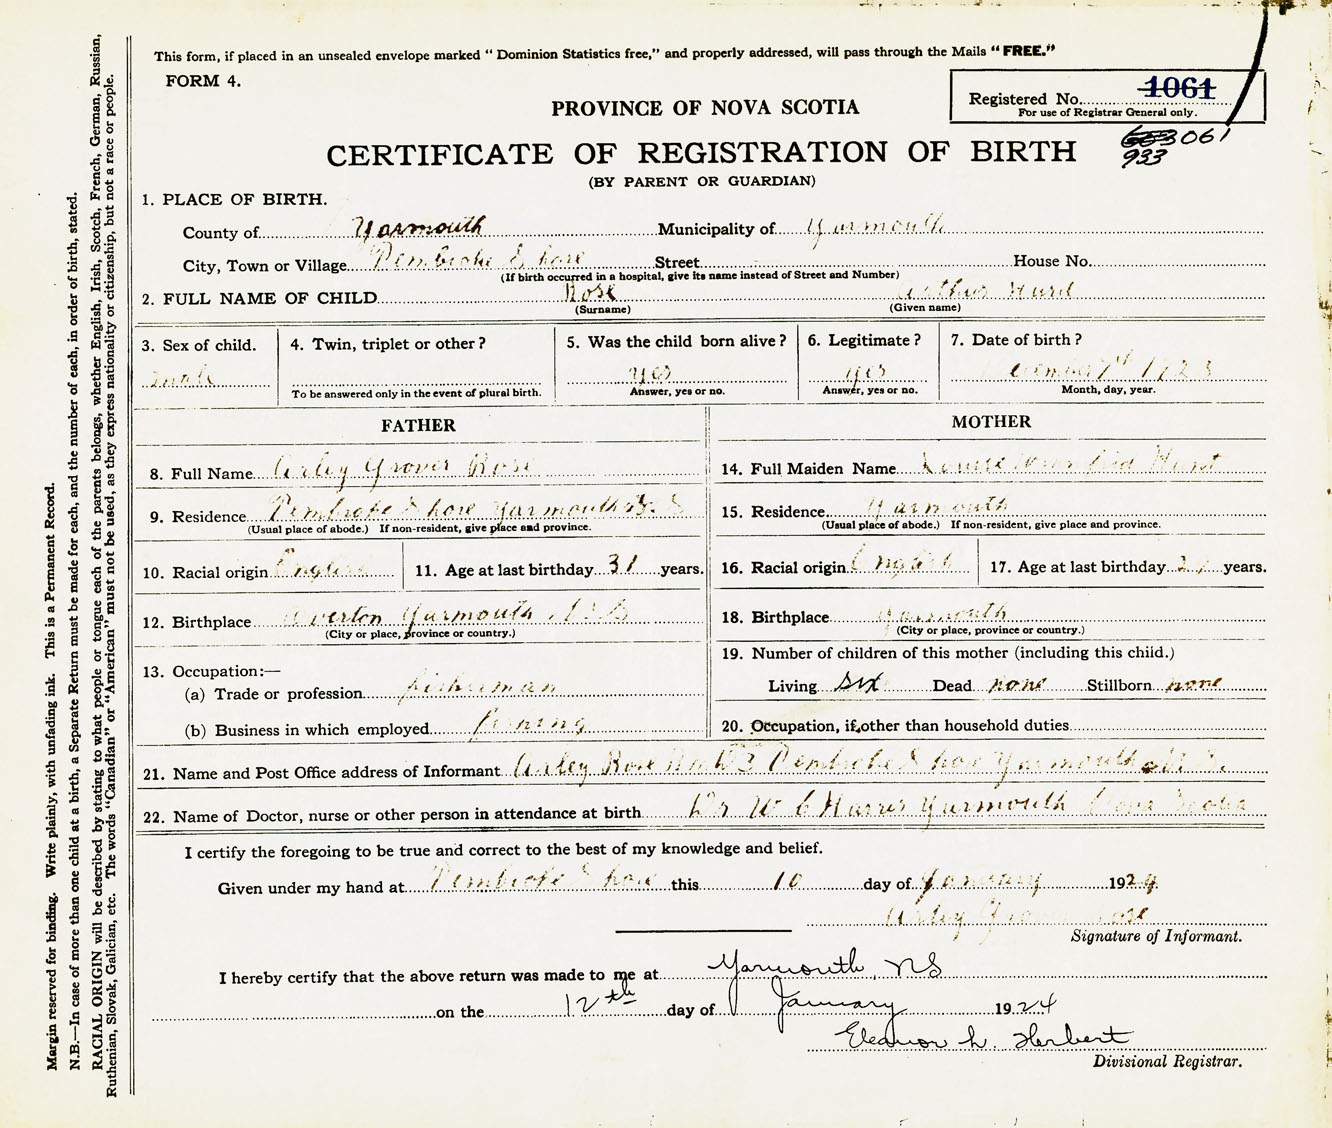 This form, if placed in an unsealed envelope marked " Dominion Statistics free," and properly addressed, will pass through the Mails "FREE."
FORM 4.
Registered No. 1061
For use of Registrar General only.
PROVINCE OF NOVA SCOTIA
061
933
CERTIFICATE OF REGISTRATION OF BIRTH
(BY PARENT OR GUARDIAN)
1. PLACE OF BIRTH.
County of Yarmouth Municipality of Yarmouth
City, Town or Village Pembroke Shore Street House No.
(If birth occurred in a hospital, give its name instead of Street and Number)
2. FULL NAME OF CHILD Rose Arthur Hurd
(Surname) (Given name)
3. Sex of child. 4. Twin, triplet or other? 5. Was the child born alive? 6. Legitimate? 7. Date of birth?
male yes yes December 7th 1923
To be answered only in the event of plural birth. Answer, yes or no. Answer, yes or no. Month, day, year.
FATHER MOTHER
8. Full Name Arley Grover Rose 14. Full Maiden Name Louise
9. Residence Pembroke Shore Yarmouth N.S 15. Residence Yarmouth
(Usual place of abode.) If non-resident, give place and province. (Usual place of abode.) If non-resident, give place and province.
10. Racial origin English 11. Age at last birthday 31 years. 16. Racial origin English 17. Age at last birthday years.
12. Birthplace Overton Yarmouth N.S 18. Birthplace Yarmouth
(City or place, province or country.) (City or place, province or country.)
13. Occupation:— 19. Number of children of this mother (including this child.)
(a) Trade or profession fisherman Living six Dead none Stillborn none
(b) Business in which employed fishing 20. Occupation, if other than household duties
21. Name and Post Office address of Informant Arley Rose Pembroke Shore Yarmouth N.S.
22. Name of Doctor, nurse or other person in attendance at birth Dr W C Harris Yarmouth Nova Scotia
I certify the foregoing to be true and correct to the best of my knowledge and belief.
Given under my hand at Pembroke Shore this 10 day of January 1924
Arley Grover Rose
Signature of Informant.
I hereby certify that the above return was made to me at Yarmouth, NS
on the 12th day of January 1924
Eleanor L. Herbert
Divisional Registrar.
Margin reserved for binding. Write plainly, with unfading ink. This is a Permanent Record.
N.B.—In case of more than one child at a birth, a Separate Return must be made for each, and the number of each, in order of birth, stated.
RACIAL ORIGIN will be described by stating to what people or tongue each of the parents belongs, whether English, Irish, Scotch, French, German, Russian,
Ruthenian, Slovak, Galician, etc. The words "Canadian" or "American" must not be used, as they express nationality or citizenship, but not a race or people.